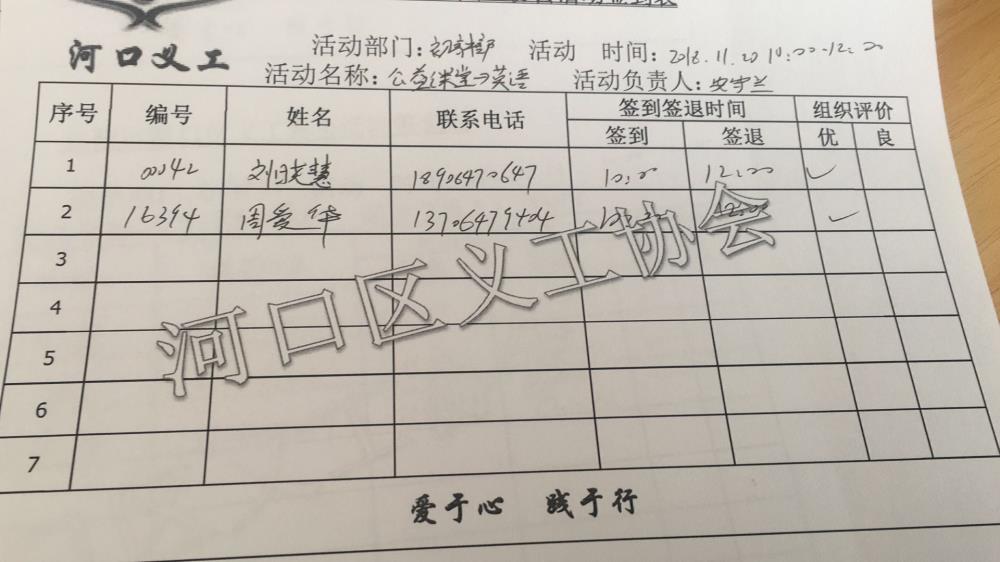 河口义工
活动部门: 活动 时间: 2018.11.20 10:00-12:00
活动名称: 公益课堂→英语 活动负责人: 安守兰
序号 编号 姓名 联系电话 签到签退时间 组织评价
签到 签退 优 良
1 00042 刘晓慧 18906470647 10:00 12:00 ✓
2 16394 周爱华 13706479404 12:00 ✓
3
4
5
6
7
河口区义工协会
爱于心 践于行